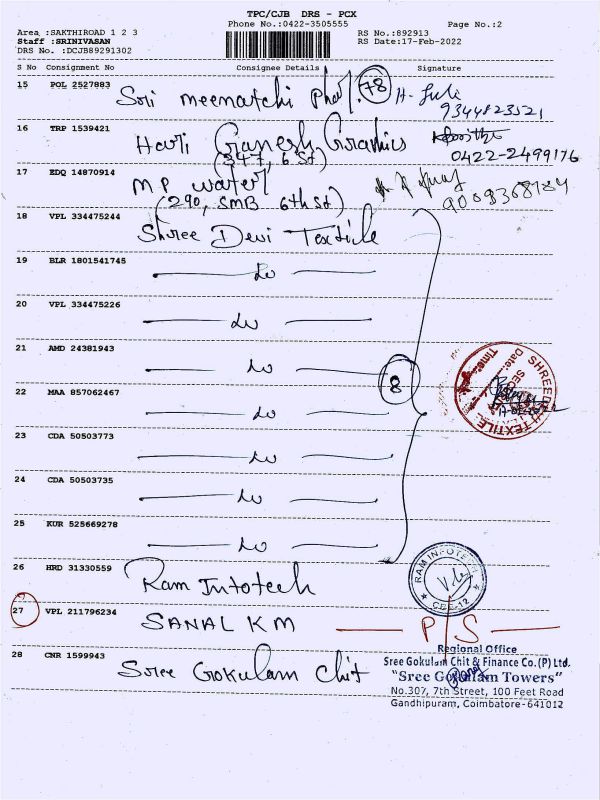 TPC/CJB DRS - PCX
Phone No.:0422-3505555
Page No.:2
Area :SAKTHIROAD 1 2 3
Staff :SRINIVASAN
DRS No. :DCJB89291302
RS No.:892913
RS Date:17-Feb-2022
S No Consignment No Consignee Details Signature
15 POL 2527883 Sri meenatchi phar. 78
9344823521
16 TRP 1539421 Hari Ganesh Graphics
(347, 6 St) 0422-2499176
17 EDQ 14870914 M P water
(290, SMB 6th St)
18 VPL 334475244 Shree Devi Textile
19 BLR 1801541745 Do
20 VPL 334475226 Do
21 AMD 24381943 Do
8
22 MAA 857062467 Do
23 CDA 50503773 Do
24 CDA 50503735 Do
25 KUR 525669278 Do
SHREE DEVI TEXTILE
Date:
Time:
26 HRD 31330559 Ram Infotech
RAM INFOTECH
CBE-12
27 VPL 211796234 SANAL K M P/S
28 CNR 1599943 Sree Gokulam Chit
Regional Office
Sree Gokulam Chit & Finance Co.(P) Ltd.
"Sree Gokulam Towers"
No.307, 7th Street, 100 Feet Road
Gandhipuram, Coimbatore-641012